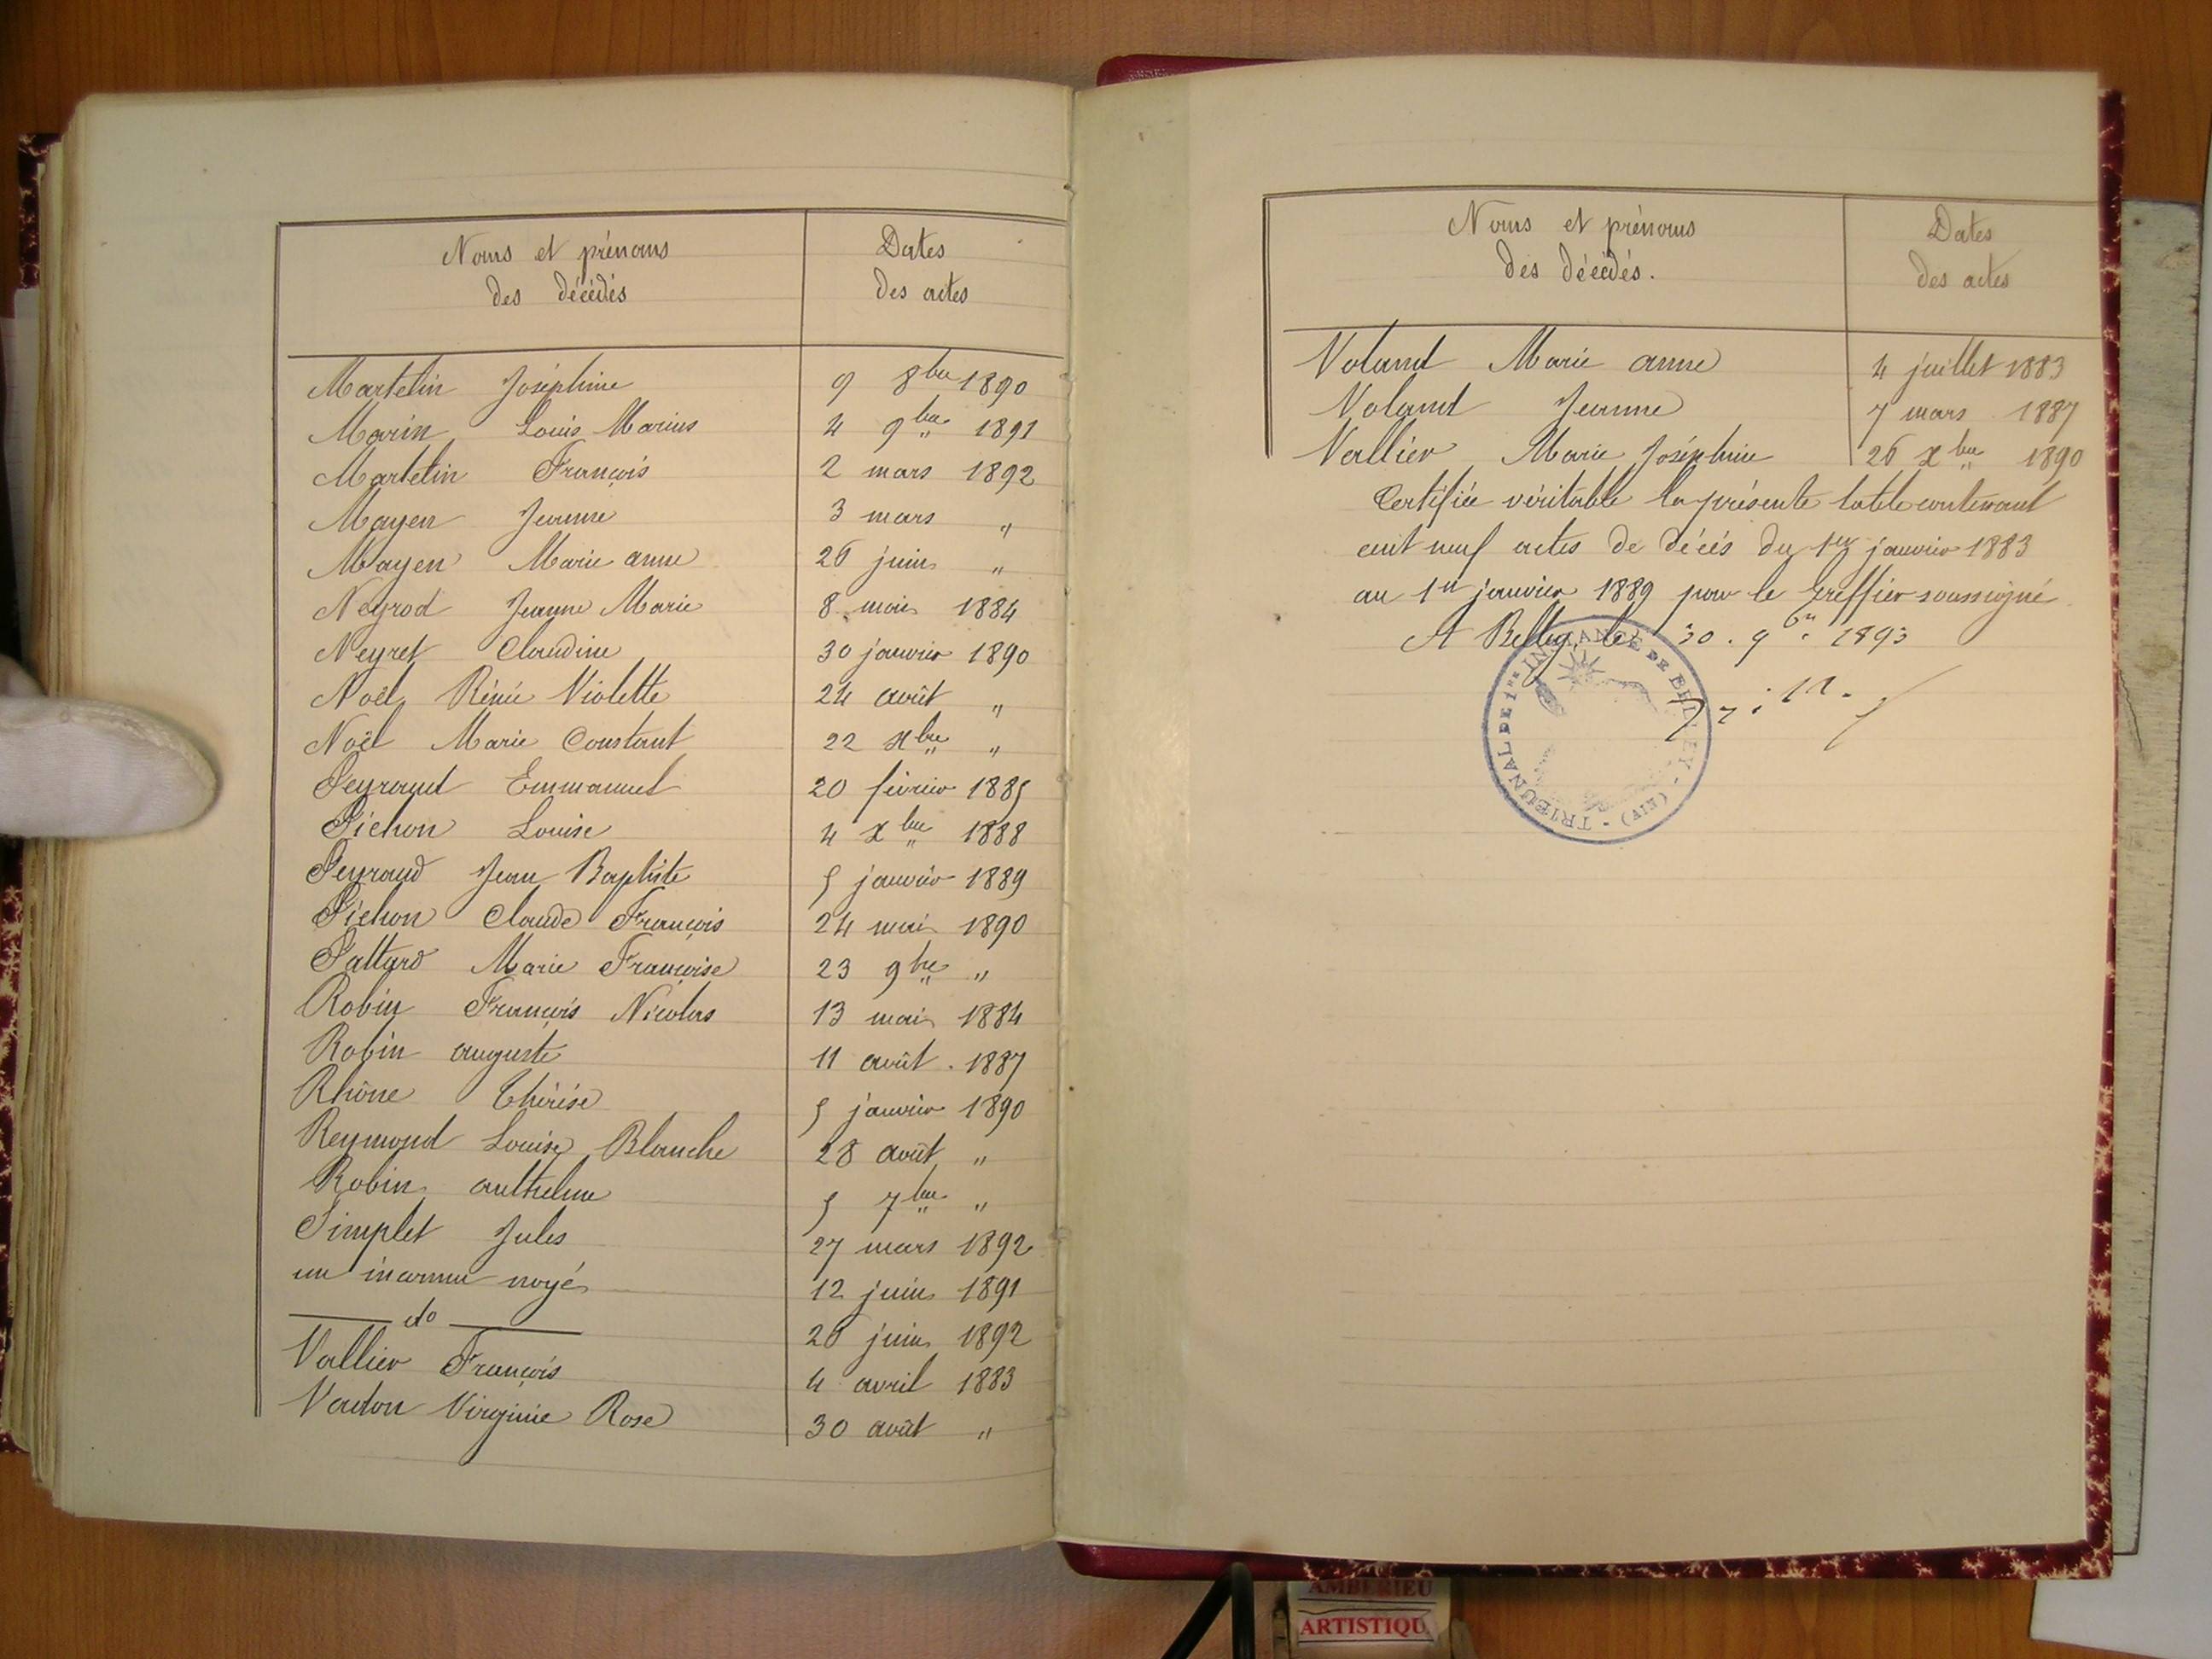 Noms et prénoms
des décédés
Dates
des actes
Martelin Joséphine 9 8bre 1890
Marin Louis Marius 4 9bre 1891
Martelin François 2 mars 1892
Mayen Jeanne 3 mars "
Mayen Marie anne 26 juin "
Neyrod Jeanne Marie 8 mai 1884
Neyret Claudine 30 janvier 1890
Noël Rénée Violette 24 août "
Noël Marie Constant 22 xbre "
Peyraud Emmanuel 20 février 1885
Pichon Louise 4 xbre 1888
Peyraud Jean Baptiste 5 janvier 1889
Pichon Claude François 24 mai 1890
Pattard Marie Françoise 23 9bre "
Robin François Nicolas 13 mai 1884
Robin auguste 11 août 1887
Rhône Thérèse 5 janvier 1890
Reymond Louise Blanche 28 août "
Robin anthelme 5 7bre "
Simplet Jules 27 mars 1892
un inconnu noyé 12 juin 1891
do 26 juin 1892
Vallier François 4 avril 1883
Virginie Rose 30 août "
Noms et prénoms
des décédés.
Dates
des actes
Voland Marie anne 4 juillet 1883
Voland Jeanne 7 mars 1887
Vallier Marie Joséphine 26 xbre 1890
Certifiée véritable la présente table contenant
cent neuf actes de décès du 1er janvier 1883
au 1er janvier 1889 par le Greffier soussigné
A Belley, le 30. 9bre 1893
TRIBUNAL DE 1RE INSTANCE DE BELLEY - (AIN) -
AMBERIEU
ARTISTIQU